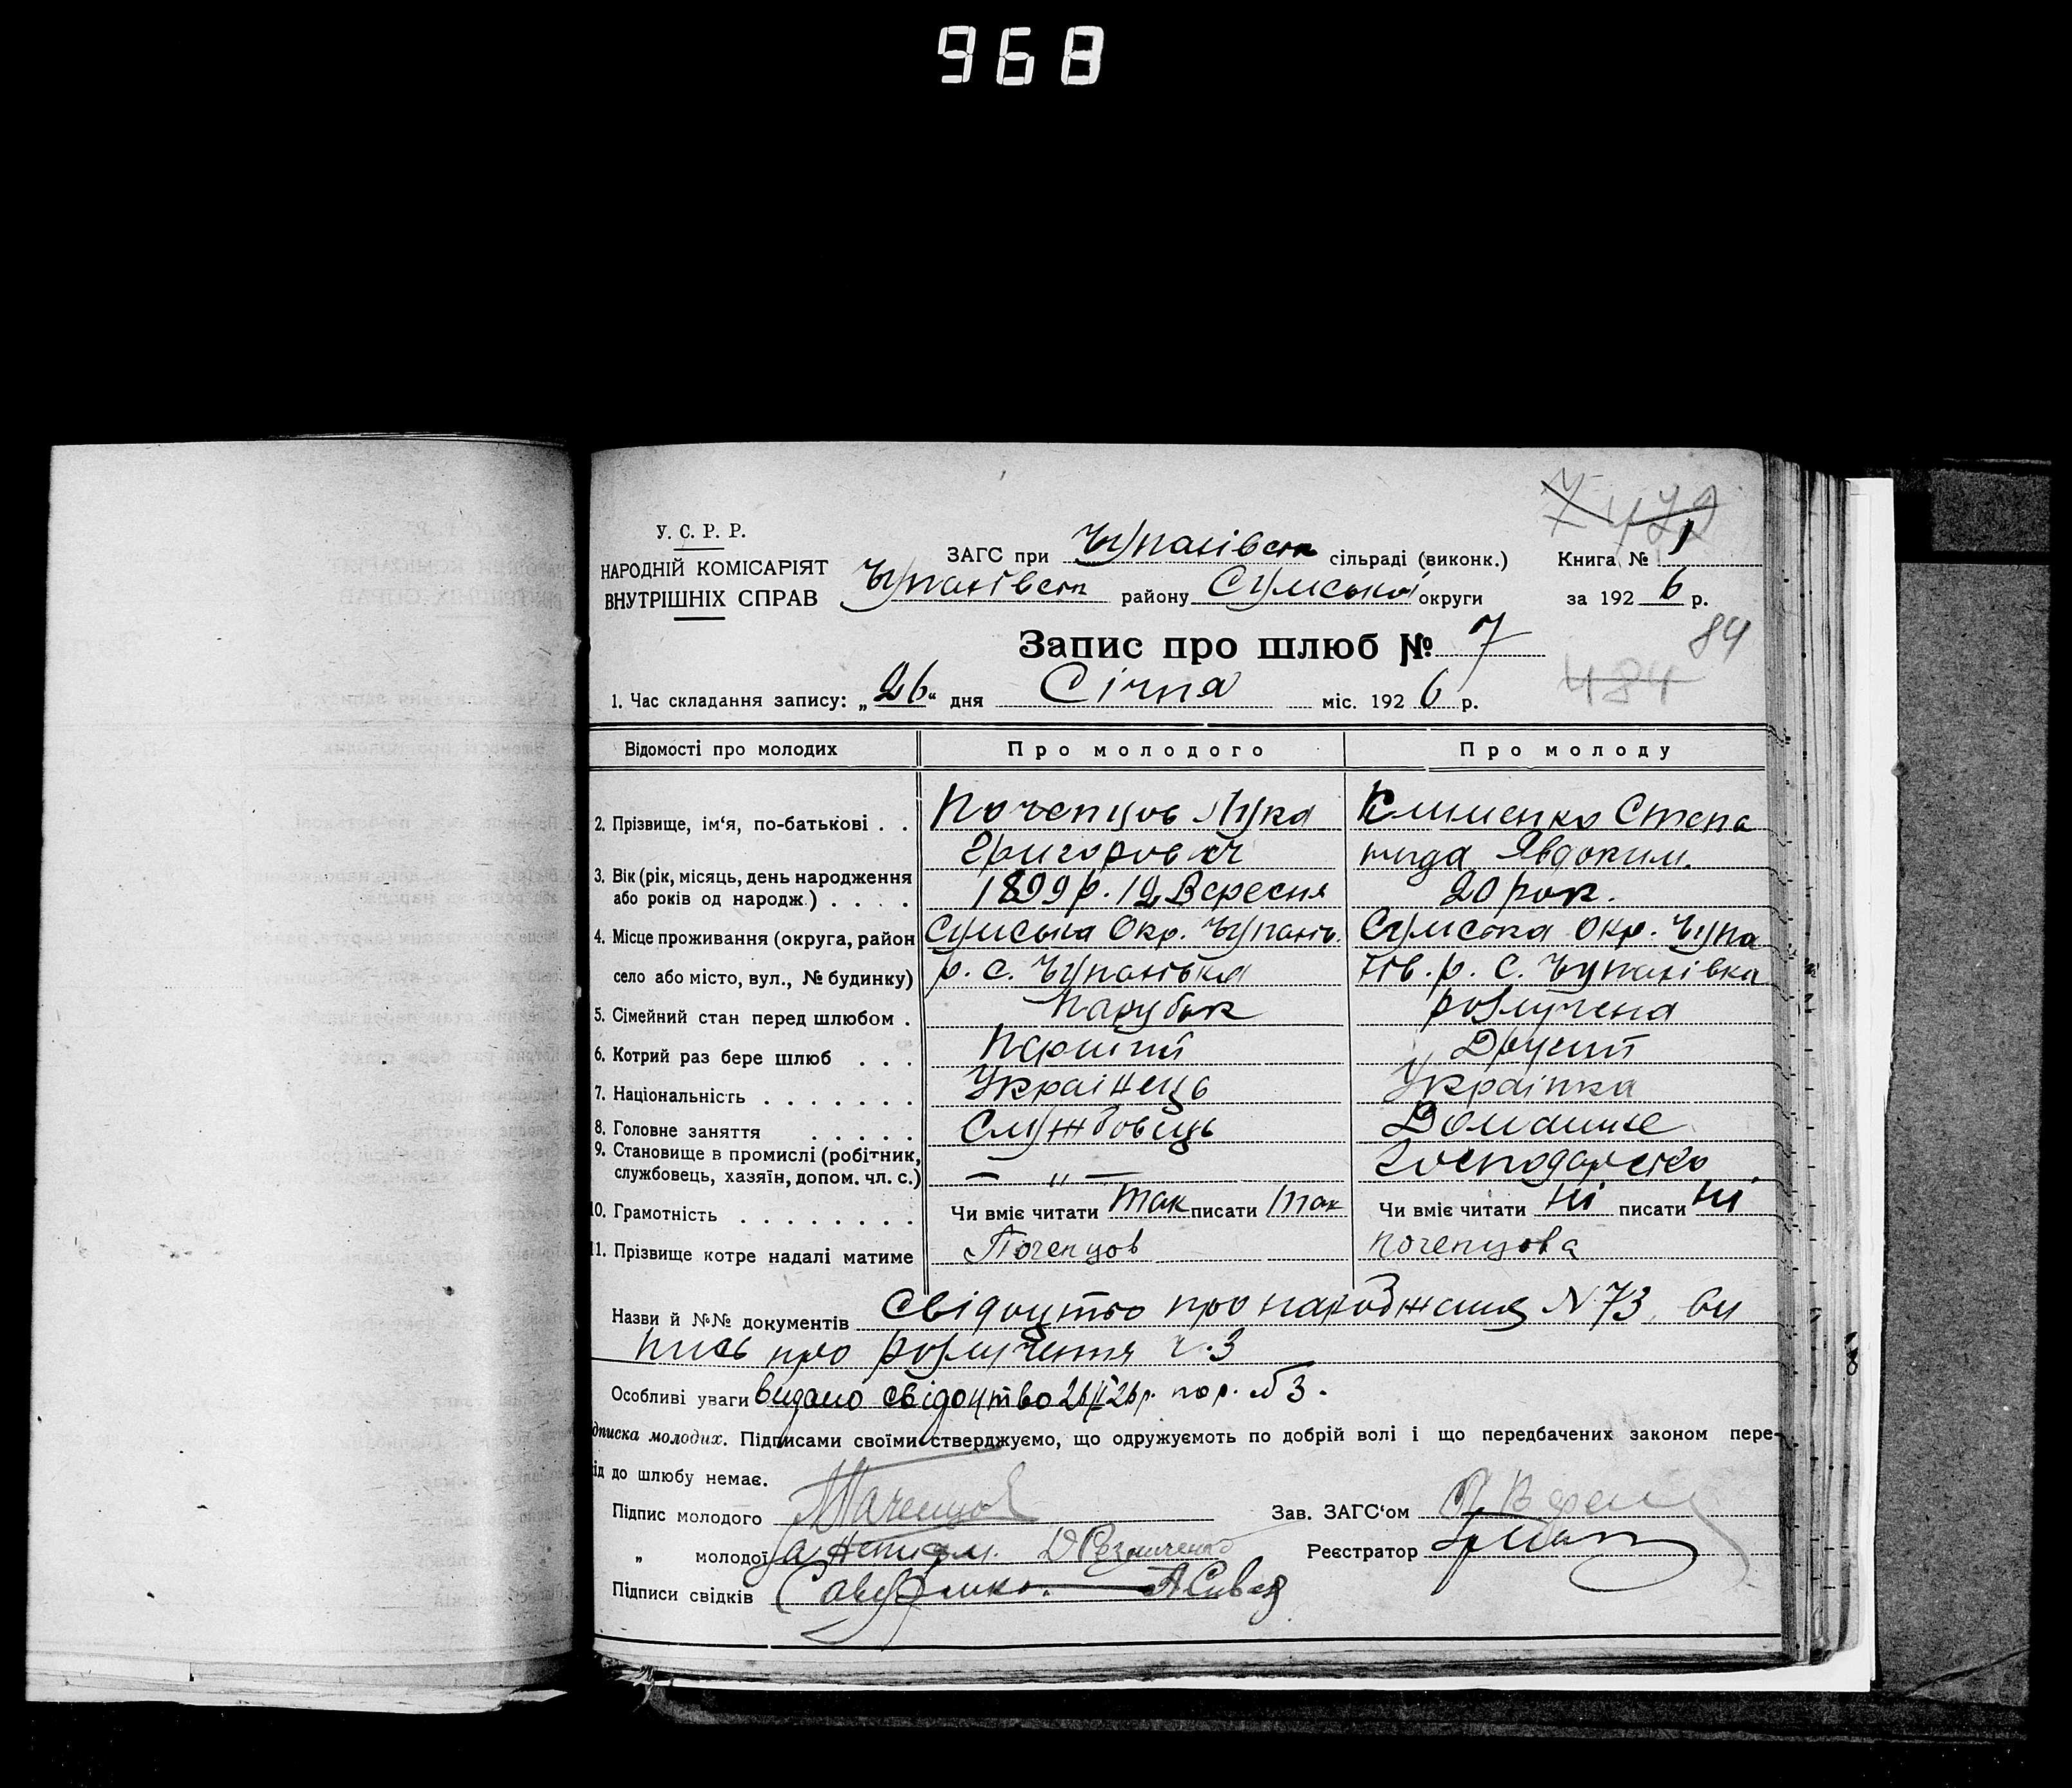 968
7 479
У. С. Р. Р.
НАРОДНІЙ КОМІСАРІЯТ
ВНУТРІШНІХ СПРАВ
ЗАГС при Чупахівськ сільраді (виконк.) Книга № 1
Чупахівськ району Сумської округи за 1926 р.
84
Запис про шлюб № 7
484
1. Час складання запису: „26“ дня Січня міс. 1926 р.
Відомості про молодих Про молодого Про молоду
2. Прізвище, ім‘я, по-батькові . . Почепцов Лука Клименко Степа
Григорович нида Явдоким.
3. Вік (рік, місяць, день народження
або років од народж.) . . . . 1899 р. 12 Вересня 20 рок.
4. Місце проживання (округа, район Сумська Окр. Чупахів. Сумська Окр. Чупа
село або місто, вул., № будинку) р. с. Чупахівка хів. р. с. Чупахівка
5. Сімейний стан перед шлюбом . Парубок розлучена
6. Котрий раз бере шлюб . . . Перший Другий
7. Національність . . . . . . . Українець Українка
8. Головне заняття . . . . . Службовець Домашнє
9. Становище в промислі (робітник,
службовець, хазяїн, допом. чл. с.) — „ — Господарство
10. Грамотність . . . . . . . . Чи вміє читати так писати так Чи вміє читати ні писати ні
11. Прізвище котре надалі матиме Почепцов Почепцова
Назви й №№ документів Свідоцтво про народження N 73, ви
пись про розлучення ч. 3
Особливі уваги видано свідоцтво 26/II 26 р. пор. № 3.
дписка молодих. Підписами своїми стверджуємо, що одружуємоть по добрій волі і що передбачених законом пере-
ід до шлюбу немає.
Підпис молодого Почепцов Зав. ЗАГС‘ом
„ молодої Реєстратор
Підписи свідків